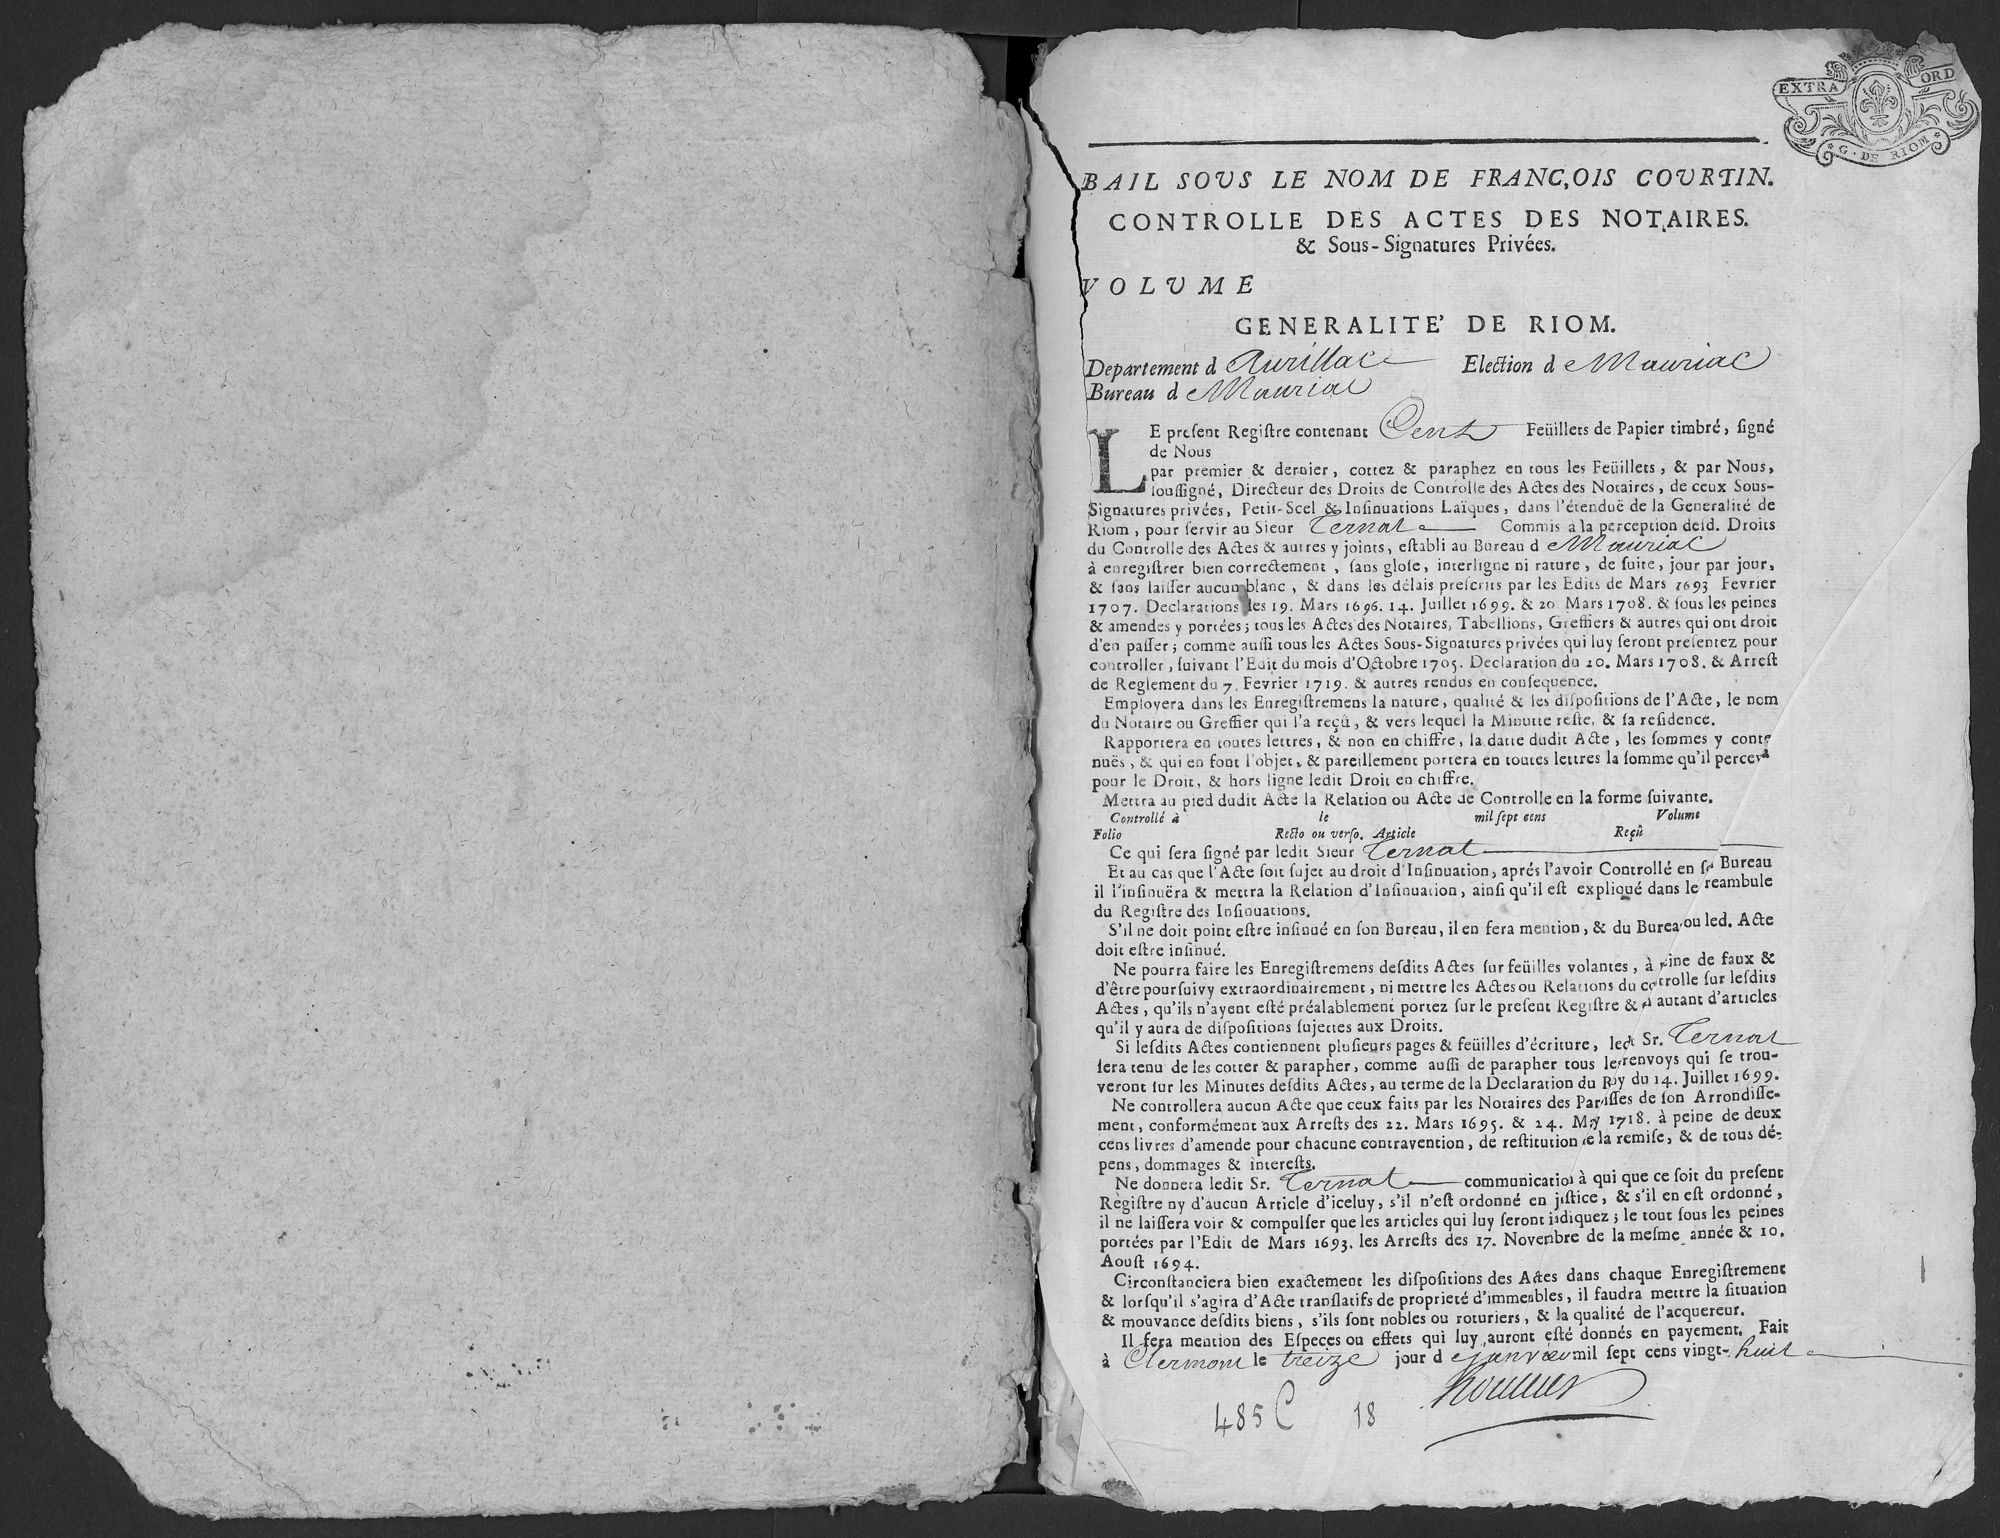 EXTRA ORD
* G. DE RIOM *
BAIL SOVS LE NOM DE FRANC,OIS COVRTIN.
CONTROLLE DES ACTES DES NOTAIRES.
& Sous-Signatures Privées.
VOLVME
GENERALITE' DE RIOM.
Departement d Aurillac Election d Mauriac
Bureau d Mauriac
LE preſent Regiſtre contenant Cent Feüillets de Papier timbré, ſigné
de Nous
par premier & dernier, cottez & paraphez en tous les Feüillets, & par Nous,
ſouſſigné, Directeur des Droits de Controlle des Actes des Notaires, de ceux Sous-
Signatures privées, Petit-Scel & Inſinuations Laïques, dans l'étenduë de la Generalité de
Riom, pour ſervir au Sieur Ternat Commis à la perception deſd. Droits
du Controlle des Actes & autres y joints, eſtabli au Bureau d Mauriac
à enregiſtrer bien correctement, ſans gloſe, interligne ni rature, de ſuite, jour par jour,
& ſans laiſſer aucun blanc, & dans les délais preſcrits par les Edits de Mars 1693 Fevrier
1707. Declarations des 19. Mars 1696. 14. Juillet 1699. & 20 Mars 1708. & ſous les peines
& amendes y portées; tous les Actes des Notaires, Tabellions, Greffiers & autres qui ont droit
d'en paſſer; comme auſſi tous les Actes Sous-Signatures privées qui luy ſeront preſentez pour
controller, ſuivant l'Edit du mois d'Octobre 1705. Declaration du 20. Mars 1708. & Arreſt
de Reglement du 7. Fevrier 1719. & autres rendus en conſequence.
Employera dans les Enregiſtremens la nature, qualité & les diſpoſitions de l'Acte, le nom
du Notaire ou Greffier qui l'a reçû, & vers lequel la Minutte reſte, & ſa reſidence.
Rapportera en toutes lettres, & non en chiffre, la datte dudit Acte, les ſommes y conte
nuës, & qui en font l'objet, & pareillement portera en toutes lettres la ſomme qu'il percevra
pour le Droit, & hors ligne ledit Droit en chiffre.
Mettra au pied dudit Acte la Relation ou Acte de Controlle en la forme ſuivante.
Controllé à le mil ſept cens Volume
Folio Recto ou verſo. Article Reçû
Ce qui ſera ſigné par ledit Sieur Ternat
Et au cas que l'Acte ſoit ſujet au droit d'Inſinuation, aprés l'avoir Controllé en ſon Bureau
il l'inſinuëra & mettra la Relation d'Inſinuation, ainſi qu'il eſt expliqué dans le reambule
du Regiſtre des Inſinuations.
S'il ne doit point eſtre inſinué en ſon Bureau, il en fera mention, & du Bureau ou led. Acte
doit eſtre inſinué.
Ne pourra faire les Enregiſtremens deſdits Actes ſur feüilles volantes, à peine de faux &
d'être pourſuivy extraordinairement, ni mettre les Actes ou Relations du controlle ſur leſdits
Actes, qu'ils n'ayent eſté préalablement portez ſur le preſent Regiſtre & d'autant d'articles
qu'il y aura de diſpoſitions ſujettes aux Droits.
Si leſdits Actes contiennent pluſieurs pages & feüilles d'écriture, ledit Sr. Ternat
ſera tenu de les cotter & parapher, comme auſſi de parapher tous les renvoys qui ſe trou-
veront ſur les Minutes deſdits Actes, au terme de la Declaration du Roy du 14. Juillet 1699.
Ne controllera aucun Acte que ceux faits par les Notaires des Paroiſſes de ſon Arrondiſſe-
ment, conformément aux Arreſts des 22. Mars 1695. & 24. May 1718. à peine de deux
cens livres d'amende pour chacune contravention, de reſtitution de la remiſe, & de tous dé-
pens, dommages & intereſts.
Ne donnera ledit Sr. Ternat communication à qui que ce ſoit du preſent
Regiſtre ny d'aucun Article d'iceluy, s'il n'eſt ordonné en juſtice, & s'il en eſt ordonné,
il ne laiſſera voir & compulſer que les articles qui luy ſeront indiquez; le tout ſous les peines
portées par l'Edit de Mars 1693. les Arreſts des 17. Novembre de la meſme année & 10.
Aouſt 1694.
Circonſtanciera bien exactement les diſpoſitions des Actes dans chaque Enregiſtrement
& lorſqu'il s'agira d'Acte tranſlatifs de proprieté d'immeubles, il faudra mettre la ſituation
& mouvance deſdits biens, s'ils ſont nobles ou roturiers, & la qualité de l'acquereur.
Il fera mention des Eſpeces ou effets qui luy auront eſté donnés en payement. Fait
à Clermont le treize jour d Janvier mil ſept cens vingt-huit
485 C 18